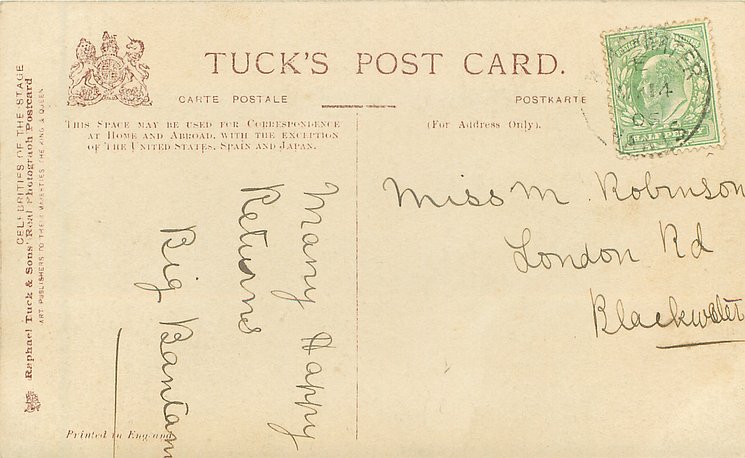 TUCK'S POST CARD.
CARTE POSTALE
POSTKARTE
THIS SPACE MAY BE USED FOR CORRESPONDENCE
AT HOME AND ABROAD, WITH THE EXCEPTION
OF THE UNITED STATES, SPAIN AND JAPAN.
(For Address Only).
Many Happy
Returns
Big Bantam
Miss M Robinson
London Rd
Blackwater
HALF PENNY
CELEBRITIES OF THE STAGE
Raphael Tuck & Sons' Real Photograph Postcard
ART PUBLISHERS TO THEIR MAJESTIES THE KING & QUEEN
Printed in England